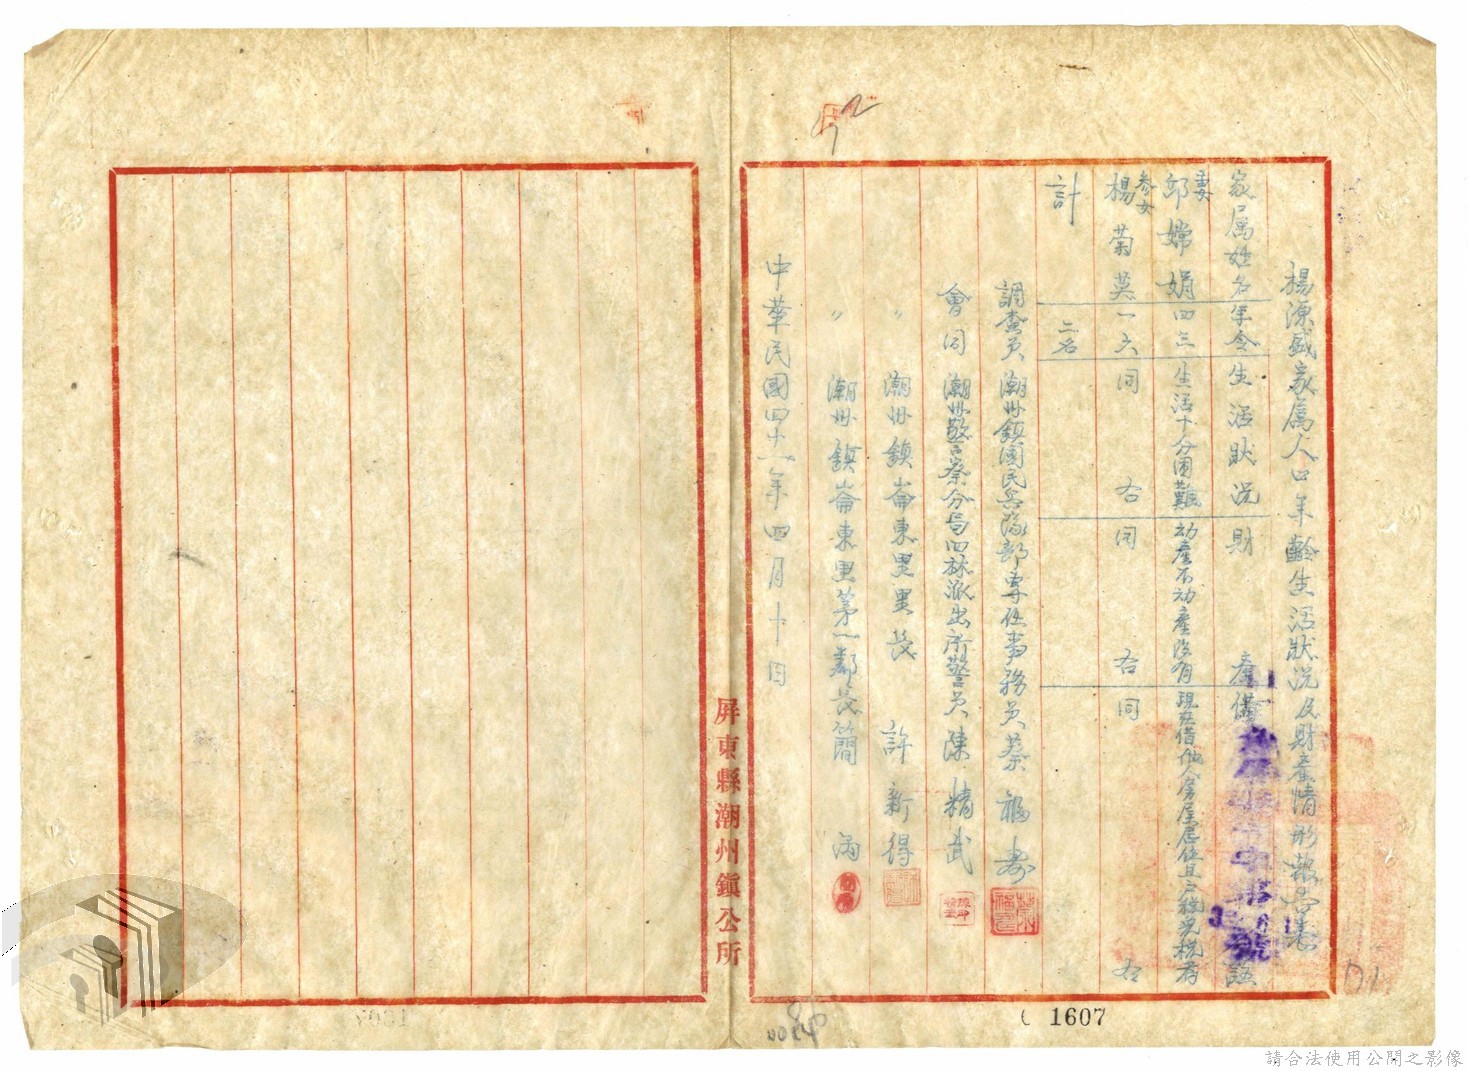 楊源盛家属人口年齡生活狀況及財產情形報告表
家属姓名
年令
生活狀況
財產
備
註
妻
邱嫦娟
四三
生活十分困難
動產不動產沒有
現在借他人房屋居住且戶稅免稅者
參女
楊菊英
一六
同右
同右
同右
計
二名
調查員 潮州鎮國民兵隊部專任事務員蔡福壽
會同 潮州警察分局四林派出所警員陳精武
〃 潮州鎮崙東里里長 許新得
〃 潮州鎮崙東里第一鄰長簡 滿
中華民國四十一年四月十日
屏東縣潮州鎮公所
1607
請合法使用公開之影像